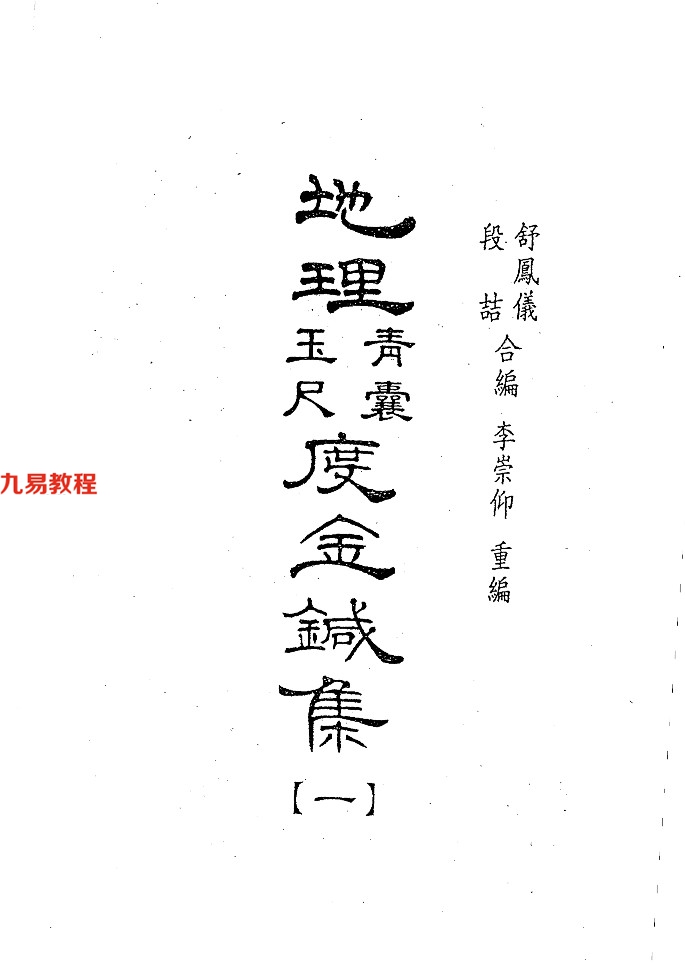 舒鳳儀
段喆
合編 李崇仰 重編
地理
青囊
玉尺
度金鍼集
【一】
九易教程